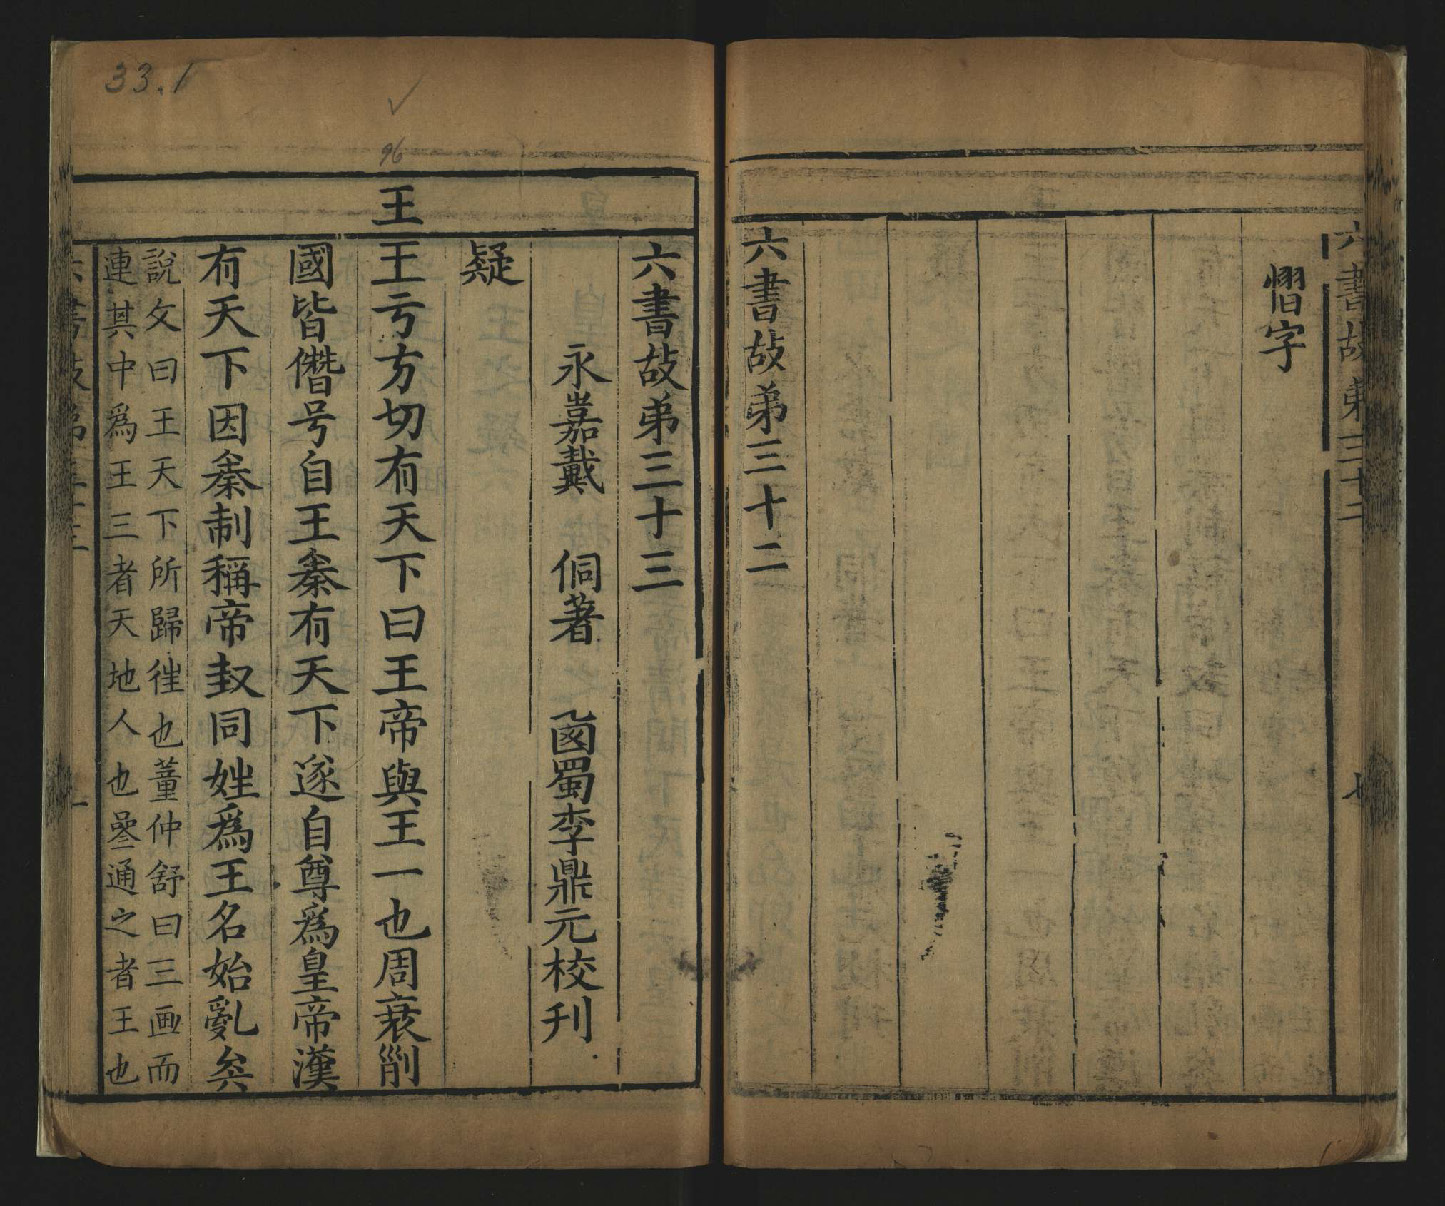 六書故弟三十二
慴字
六書故弟三十二
33.1
96
六書故弟三十三
永嘉戴 侗著 㢴蜀李鼎元校刊
疑
王
王亏方切有天下曰王帝與王一也周衰削
國皆僭号自王秦有天下遂自尊爲皇帝漢
有天下因秦制稱帝㓝同姓爲王名始亂矣
說文曰王天下所歸徃也董仲舒曰三画而
連其中爲王三者天地人也曑通之者王也
六書故弟三十三 一